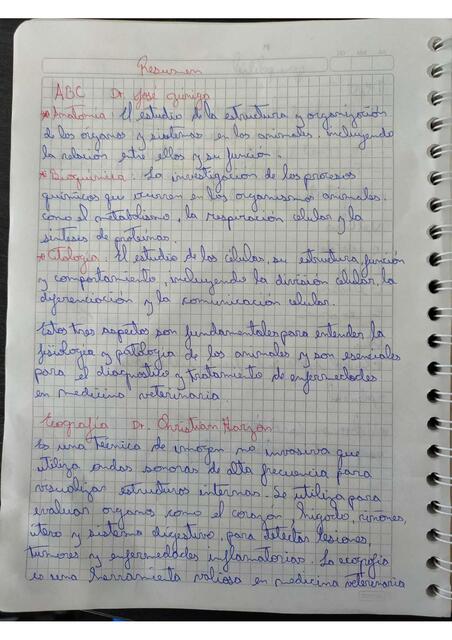 Resumen
ABC Dr. José Zuniga
* Anatomia. El estudio de la estructura y organización
de los organos y sistemas en los animales, incluyendo
la relacion entre ellos y su función.
* Bioquimica. La investigacion de los procesos
quimicos que ocurren en los organismos animales.
como el metabolismo, la respiracion celular y la
sintesis de proteinas.
* Citologia. El estudio de las células, su estructura, función
y comportamiento, incluyendo la division celular, la
diferenciacion y la comunicacion celular.
Estos tres aspectos son fundamentales para entender la
fisiologia y patologia de los animales y son esenciales
para el diagnostico y tratamiento de enfermedades
en medicina veterinaria.
Ecografia Dr. Christian
Es una técnica de imagen no invasiva que
utiliza ondas sonoras de alta frecuencia para
visualizar estructuras internas. Se utiliza para
evaluar organos como el corazon, higado, rinones,
utero y sistema digestivo, para detectar lesiones,
tumores y enfermedades inflamatorias. La ecografia
es una herramienta valiosa en medicina veterinaria